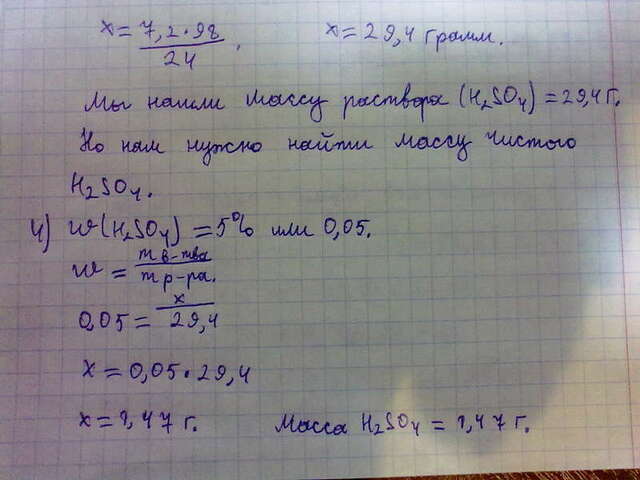 x = 7,2 • 98 / 24, x = 29,4 грамм.
Мы нашли массу раствора (H₂SO₄) = 29,4 г.
Но нам нужно найти массу чистого
H₂SO₄.
4) w(H₂SO₄) = 5% или 0,05.
w = m в-тва / m р-ра.
0,05 = x / 29,4
x = 0,05 • 29,4
x = 1,47 г. Масса H₂SO₄ = 1,47 г.